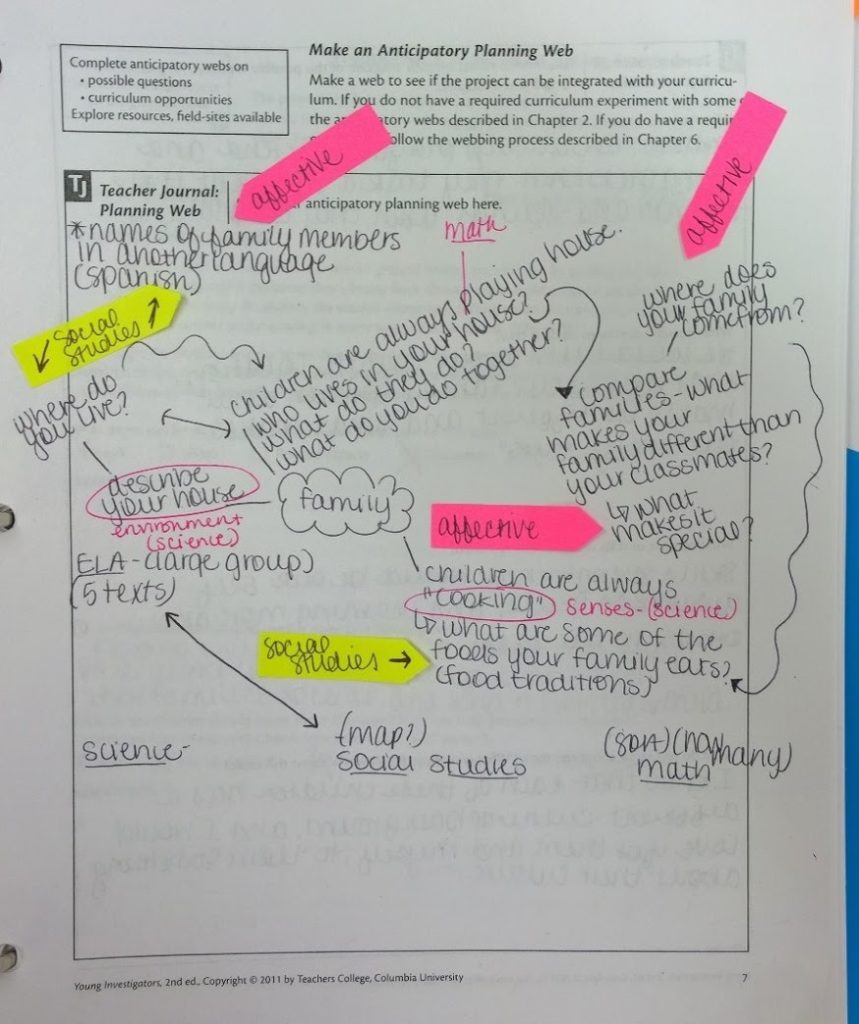 Complete anticipatory webs on
• possible questions
• curriculum opportunities
Explore resources, field-sites available
Make an Anticipatory Planning Web
Make a web to see if the project can be integrated with your curricu-
lum. If you do not have a required curriculum experiment with some
the webs described in Chapter 2. If you do have a
follow the webbing process described in Chapter 6.
affective
affective
TJ
Teacher Journal:
Planning Web
anticipatory planning web here.
*names of family members
in another language
(spanish)
math
social
studies
where does
your family
come from?
children are always playing house.
who lives in your house?
what do they do?
what do you do together?
where do
you live?
compare
families-what
makes your
family different than
your classmates?
↳ what
makes it
special?
describe
your house
environment
(science)
family
affective
ELA-(large group)
(5 texts)
children are always
"cooking" senses-(science)
↳ what are some of the
foods your family eats?
(food traditions)
social
studies →
science-
(map?)
social studies
(sort) (how many)
math
Young Investigators, 2nd ed., Copyright © 2011 by Teachers College, Columbia University
7